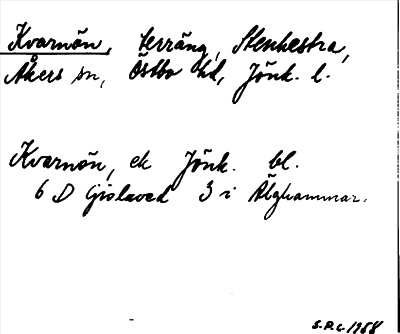 Kvarnön, terräng, Stenhestra,
Åkers sn, Östbo hd, Jönk. l.
Kvarnön, ek Jönk. bl.
6 D Gislaved 3 i Älghammar.
S.R.G. 1958